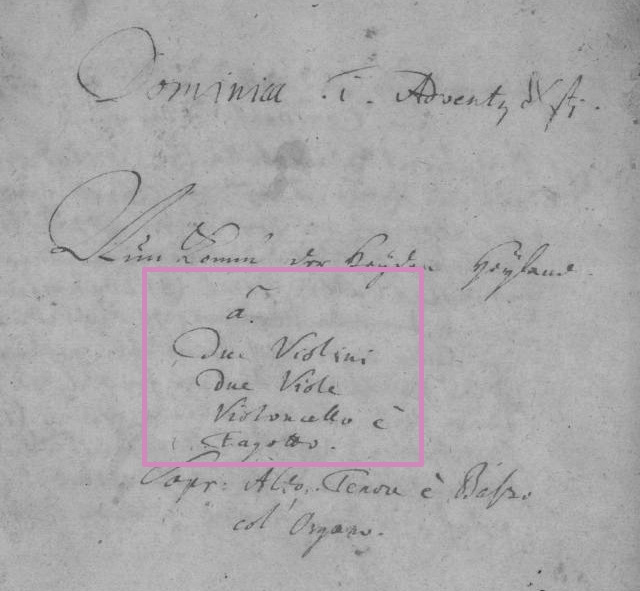 Dominica I. Advents Xsti.
Nun komm' der Heyden Heyland.
a.
Due Violini
Due Viole
Violoncello è
Fagotto.
Sopr: Alto, Tenore è Basso
col' Organo.